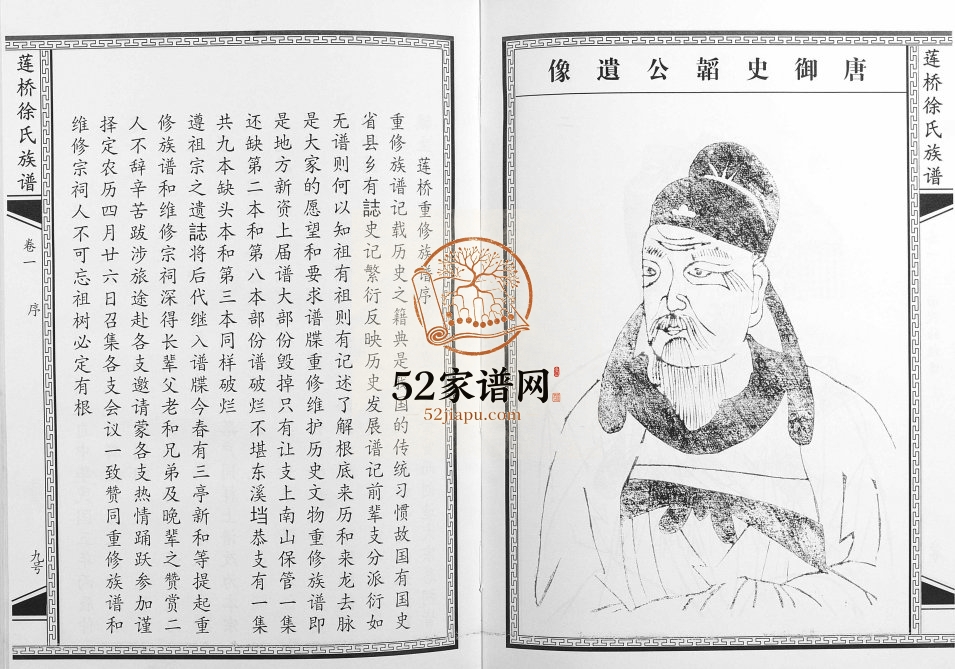 莲桥徐氏族谱
唐御史韜公遺像
莲桥重修族谱序
重修族谱记载历史之籍典是国的传统习惯故国有国史
省县乡有誌史记繁衍反映历史发展谱记前辈支分派衍如
无谱则何以知祖有祖则有记述了解根底来历和来龙去脉
是大家的愿望和要求谱牒重修维护历史文物重修族谱即
是地方新资上届谱大部份毁掉只有让支上南山保管一集
还缺第二本和第八本部份谱破烂不堪东溪垱恭支有一集
共九本缺头本和第三本同样破烂
遵祖宗之遗誌将后代继入谱牒今春有三亭新和等提起重
修族谱和维修宗祠深得长辈父老和兄弟及晚辈之赞赏二
人不辞辛苦跋涉旅途赴各支邀请蒙各支热情踊跃参加谨
择定农历四月廿六日召集各支会议一致赞同重修族谱和
维修宗祠人不可忘祖树必定有根
莲桥徐氏族谱
卷一
序
九号
52家谱网
52jiapu.com